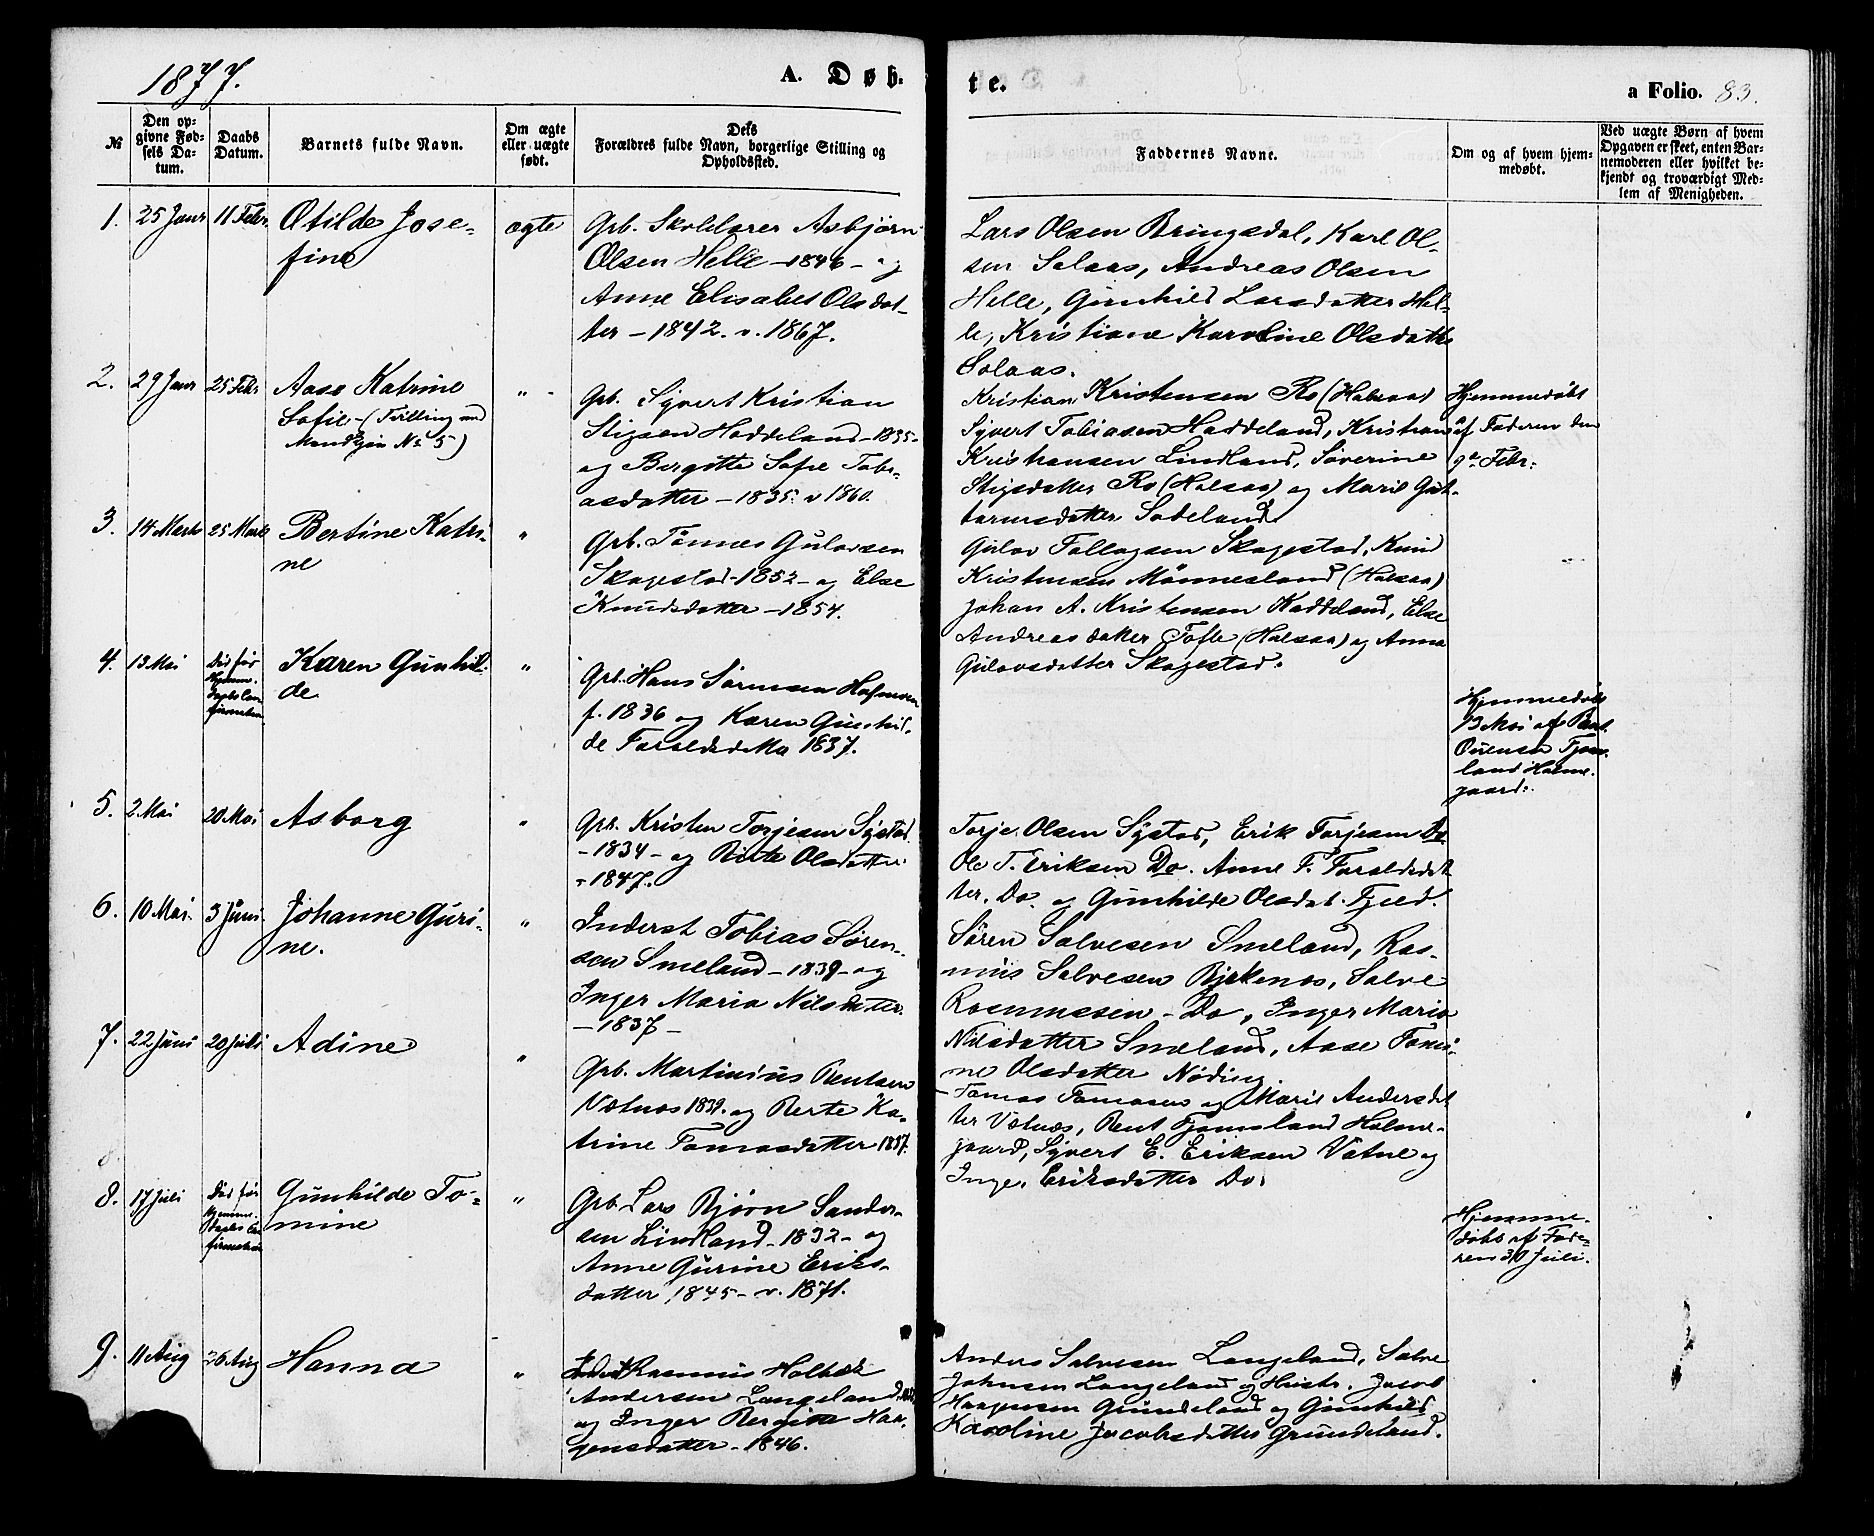 1877.
A. Døb-
te.
a Folio. 83.
№
Den op-
givne Fød-
sels Da-
tum.
Daabs
Datum.
Barnets fulde Navn.
Om ægte
eller uægte
født.
Dets
Forældres fulde Navn, borgerlige Stilling og
Opholdssted.
Faddernes Navne.
Om og af hvem hjem-
medøbt.
Ved uægte Børn af hvem
Opgaven er skeet, enten Bar-
nemoderen eller hvilket be-
kjendt og troværdigt Med-
lem af Menigheden.
1. 25 Janr 11 Febr.
Otilde Jose-
fine
ægte
Grb. Skolelærer Asbjørn
Olsen Helle - 1846 - og
Anne Elisabet Olsdat-
ter - 1842. v. 1867.
Lars Olsen Bringsdal, Karl Ol-
sen Solaas, Andreas Olsen
Helle, Gunhild Larsdatter Hel-
le, Kristiane Karoline Olsdatter
Solaas.
2. 29 Janr 25 Febr
Aase Katrine
Sofie - (Tvilling med
Mandkjøn № 5)
"
Grb. Syvert Kristian
Stigsen Haddeland - 1835 -
og Bergitte Sofie Tobi-
asdatter - 1835. v 1860.
Kristian Kristensen Ro (Halsaa)
Syvert Tobiasen Haddeland, Kristian
Kristiansen Lindland, Severine
Stigsdatter Ro (Halsaa) og Marie Gut-
tormsdatter Sodeland.
Hjemmedøbt
af Faderen den
9de Febr.
3. 14 Marts 25 Marts
Bertine Katri-
ne
"
Grb. Tønnes Gulovsen
Skagestad - 1852 - og Else
Knudsdatter - 1854.
Gulov Follagsen Skagestad, Knud
Kristensen Mønnesland (Halsaa)
Johan A. Kristensen Haddeland, Else
Andreasdatter Tofte (Halsaa) og Anna
Gulovsdatter Skagestad.
4. 13 Mai
Død før
Hjemme-
daabs Con-
firmation
Karen Gunhil-
de
"
Grb. Hans Sørensen
f. 1836 og Karen Gunhil-
de Taraldsd. 1837.
Hjemmedøbt
13 Mai af Bent
Ovensen Fjom-
land Holme-
gaard.
5. 2 Mai 20 Mai
Asborg
"
Grb. Kristen Torjesen Systad
- 1834 - og Birte Olsdatter
- 1847.
Torje Olsen Systad, Erik Torjesen Do
Ole T. Eriksen Do. Anne T. Taraldsdat-
ter. Do. og Gunhilde Olsdat. Fjeld.
6. 10 Mai. 3 Juni.
Johanne Guri-
ne.
"
Inderst Tobias Søren-
sen Smeland - 1839 - og
Inger Maria Nilsdatter
- 1837 -
Søren Salvesen Smeland, Ras-
mus Salvesen Bjerkenes, Salve
Rasmusen - Do, Inger Maria
Nilsdatter Smeland, Aase Tomi-
ne Olsdatter Nøding.
7. 22 Juni 20 Juli
Adine
"
Grb. Martinius Bentsen
Vatnes 1839. og Berte Ka-
trine Tomasdatter 1837.
Tomas Tomasen og Marie Andersdat-
ter Vatnes, Bent Fjomsland Holme-
gaard, Syvert E. Eriksen Vatne og
Inge. Eriksdatter Do.
8. 17 Juli
Død før
Hjemme-
daabs Con-
firmation
Gunhilde To-
mine
"
Grb. Lars Bjørn Sander-
sen Lindland - 1832 - og
Anne Gurine Eriks-
datter 1845 - v. 1871.
Hjemme-
døbt af Fade-
ren 30 Juli.
9. 11 Aug 26 Aug
Hanna
"
Inderst Rasmus Holbæk
Andersen Langeland
og Inger Bergitte Haa-
gensdatter - 1846.
Anders Salvesen Langeland, Salve
Johnsen Langeland og Hustr. Jacob
Haagensen Grundeland og Gunhild
Karoline Jacobsdatter Grundeland.